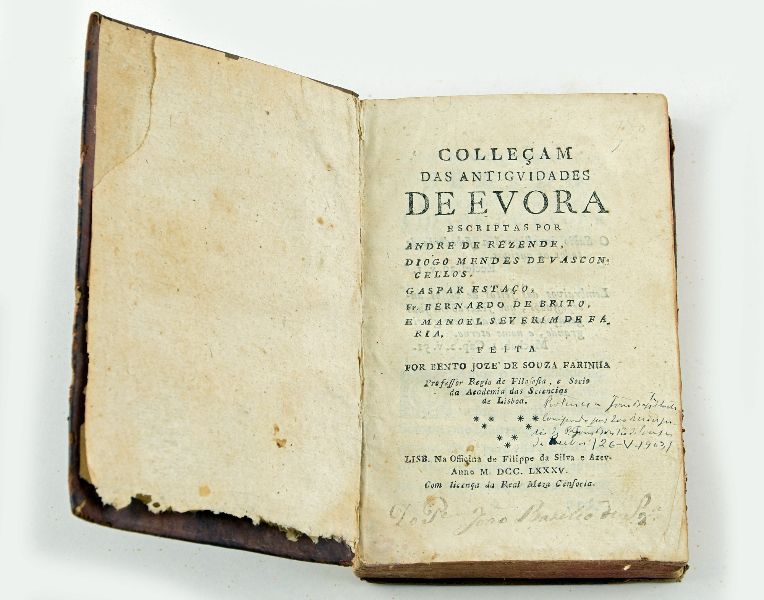 COLLEÇAM
DAS ANTIGVIDADES
DE EVORA
ESCRIPTAS POR
ANDRE DE REZENDE,
DIOGO MENDES DE VASCON-
CELLOS,
GASPAR ESTAÇO,
Fr. BERNARDO DE BRITO,
E MANOEL SEVERIM DE FA-
RIA,
FEITA
POR BENTO JOZE' DE SOUZA FARINHA
Professor Regio de Filosofia, e Socio
da Academia das Sciencias
de Lisboa.
LISB. Na Officina de Filippe da Silva e Azev.
Anno M. DCC. LXXXV.
Com licença da Real Meza Censoria.
26-V-1903
João